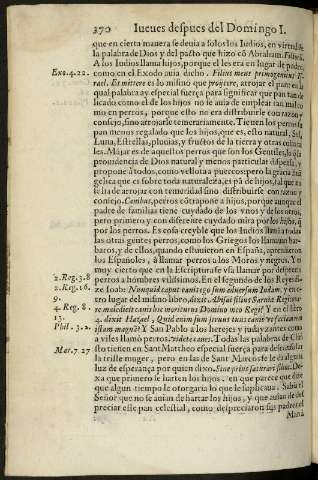 370 Iueues despues del Domingo I.
que en cierta manera se deuia a solos los Iudios, en virtud de
la palabra de Dios y del pacto que hizo cõ Abraham. Filiorũ.
A los Iudios llama hijos, porque el les era en lugar de padre,
Exo. 4. 22. como en el Exodo auia dicho. Filius meus primogenitus Is-
rael. Et mittere es lo mismo que proijcere, arrojar el pan: en la
qual palabra ay especial fuerça para significar que pan tan de
licado como el de los hijos no le auia de emplear tan mal co
mo en perros, porque esto no era distribuirle con razon y
consejo, sino arrojarle temerariamente. Tienen los perros su
pan menos regalado que los hijos, que es, esto natural, Sol,
Luna, Estrellas, pluuias, y frutos de la tierra y otras cumunes.
Mãjar es de aquestos perros que son los Gentiles, lo q̃ la
prouidencia de Dios natural y menos particular dispensa, y
propone a todos, como vellota a puercos: pero la gracia diui
que es sobre toda naturaleza, es pã de hijos, tal que es
de arrojar con temeridad sino distribuirse con razon y
consejo. Canibus, perros cõtrapone a hijos, porque aunque el
padre de familias tiene cuydado de los vnos y de los otros,
pero primero y con diferente cuydado mira por los hijos, q̃
por los perros. Es cosa creyble que los Iudios llamauã a todas
las otras gentes perros, como los Griegos los llamauan bar-
baros, y de ellos, quando estuuieron en España, aprendieron
los Españoles, a llamar perros a los Moros y negros. Y
muy cierto que en la Escriptura se vsa llamar por desprecio
2. Reg. 3. 8 perros a hombres vilissimos. En el segundo de los Reyes di-
2. Reg. 16. xo Isboth: Nunquid caput canis ego sum aduersum Iudam, y en o-
9. tro lugar del mismo libro, dixit Abisai filius Saruiæ Regi: qua-
4. Reg. 8. re maledicit canis hic moriturus Domino meo Regi? Y en el libro
13. 4. dixit Hazael, Quid enim sum seruus tuus canis vt faciam rem
Phil. 3. 2. istam magnã? Y San Pablo a los herejes y judayzantes como
a viles llamò perros. videte canes. Todas las palabras de Chri
sto tienen en Sant Mattheo especial fuerça para desconsolar
Mar. 7. 27 la triste muger, pero en las de Sant Marcos se le dà alguna
luz de esperança por quien dixo. Sine prius saturari filios. De-
xa que primero se harten los hijos: en que parece que dize
que algun tiempo le otorgaria lo que le suplicaua. Sabia el
Señor que no se auian de hartar los hijos, y que auian de des
preciar este pan celestial, como despreciaron sus padres el
Manà